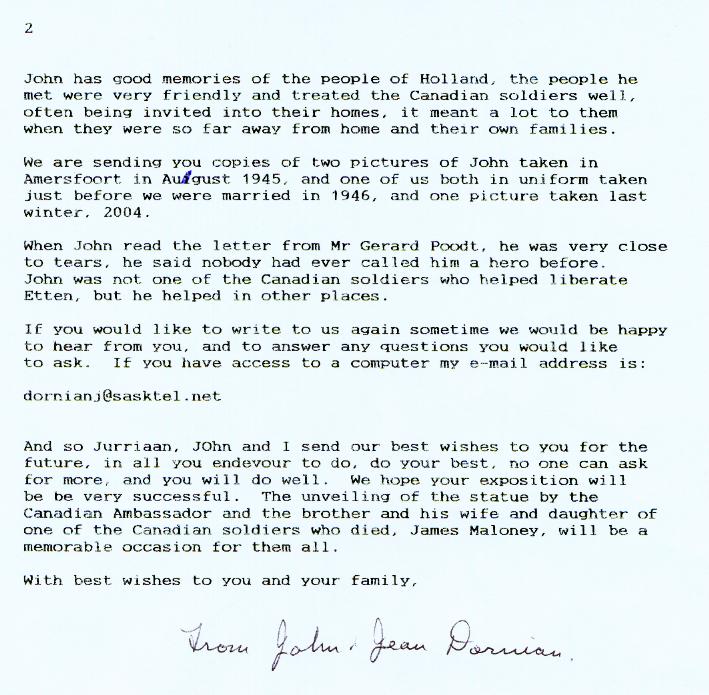 2
John has good memories of the people of Holland, the people he
met were very friendly and treated the Canadian soldiers well,
often being invited into their homes, it meant a lot to them
when they were so far away from home and their own families.
We are sending you copies of two pictures of John taken in
Amersfoort in August 1945, and one of us both in uniform taken
just before we were married in 1946, and one picture taken last
winter, 2004.
When John read the letter from Mr Gerard Poodt, he was very close
to tears, he said nobody had ever called him a hero before.
John was not one of the Canadian soldiers who helped liberate
Etten, but he helped in other places.
If you would like to write to us again sometime we would be happy
to hear from you, and to answer any questions you would like
to ask.  If you have access to a computer my e-mail address is:
dornianj@sasktel.net
And so Jurriaan, JOhn and I send our best wishes to you for the
future, in all you endevour to do, do your best, no one can ask
for more, and you will do well.  We hope your exposition will
be be very successful.  The unveiling of the statue by the
Canadian Ambassador and the brother and his wife and daughter of
one of the Canadian soldiers who died, James Maloney, will be a
memorable occasion for them all.
With best wishes to you and your family,
From John & Jean Dornian.